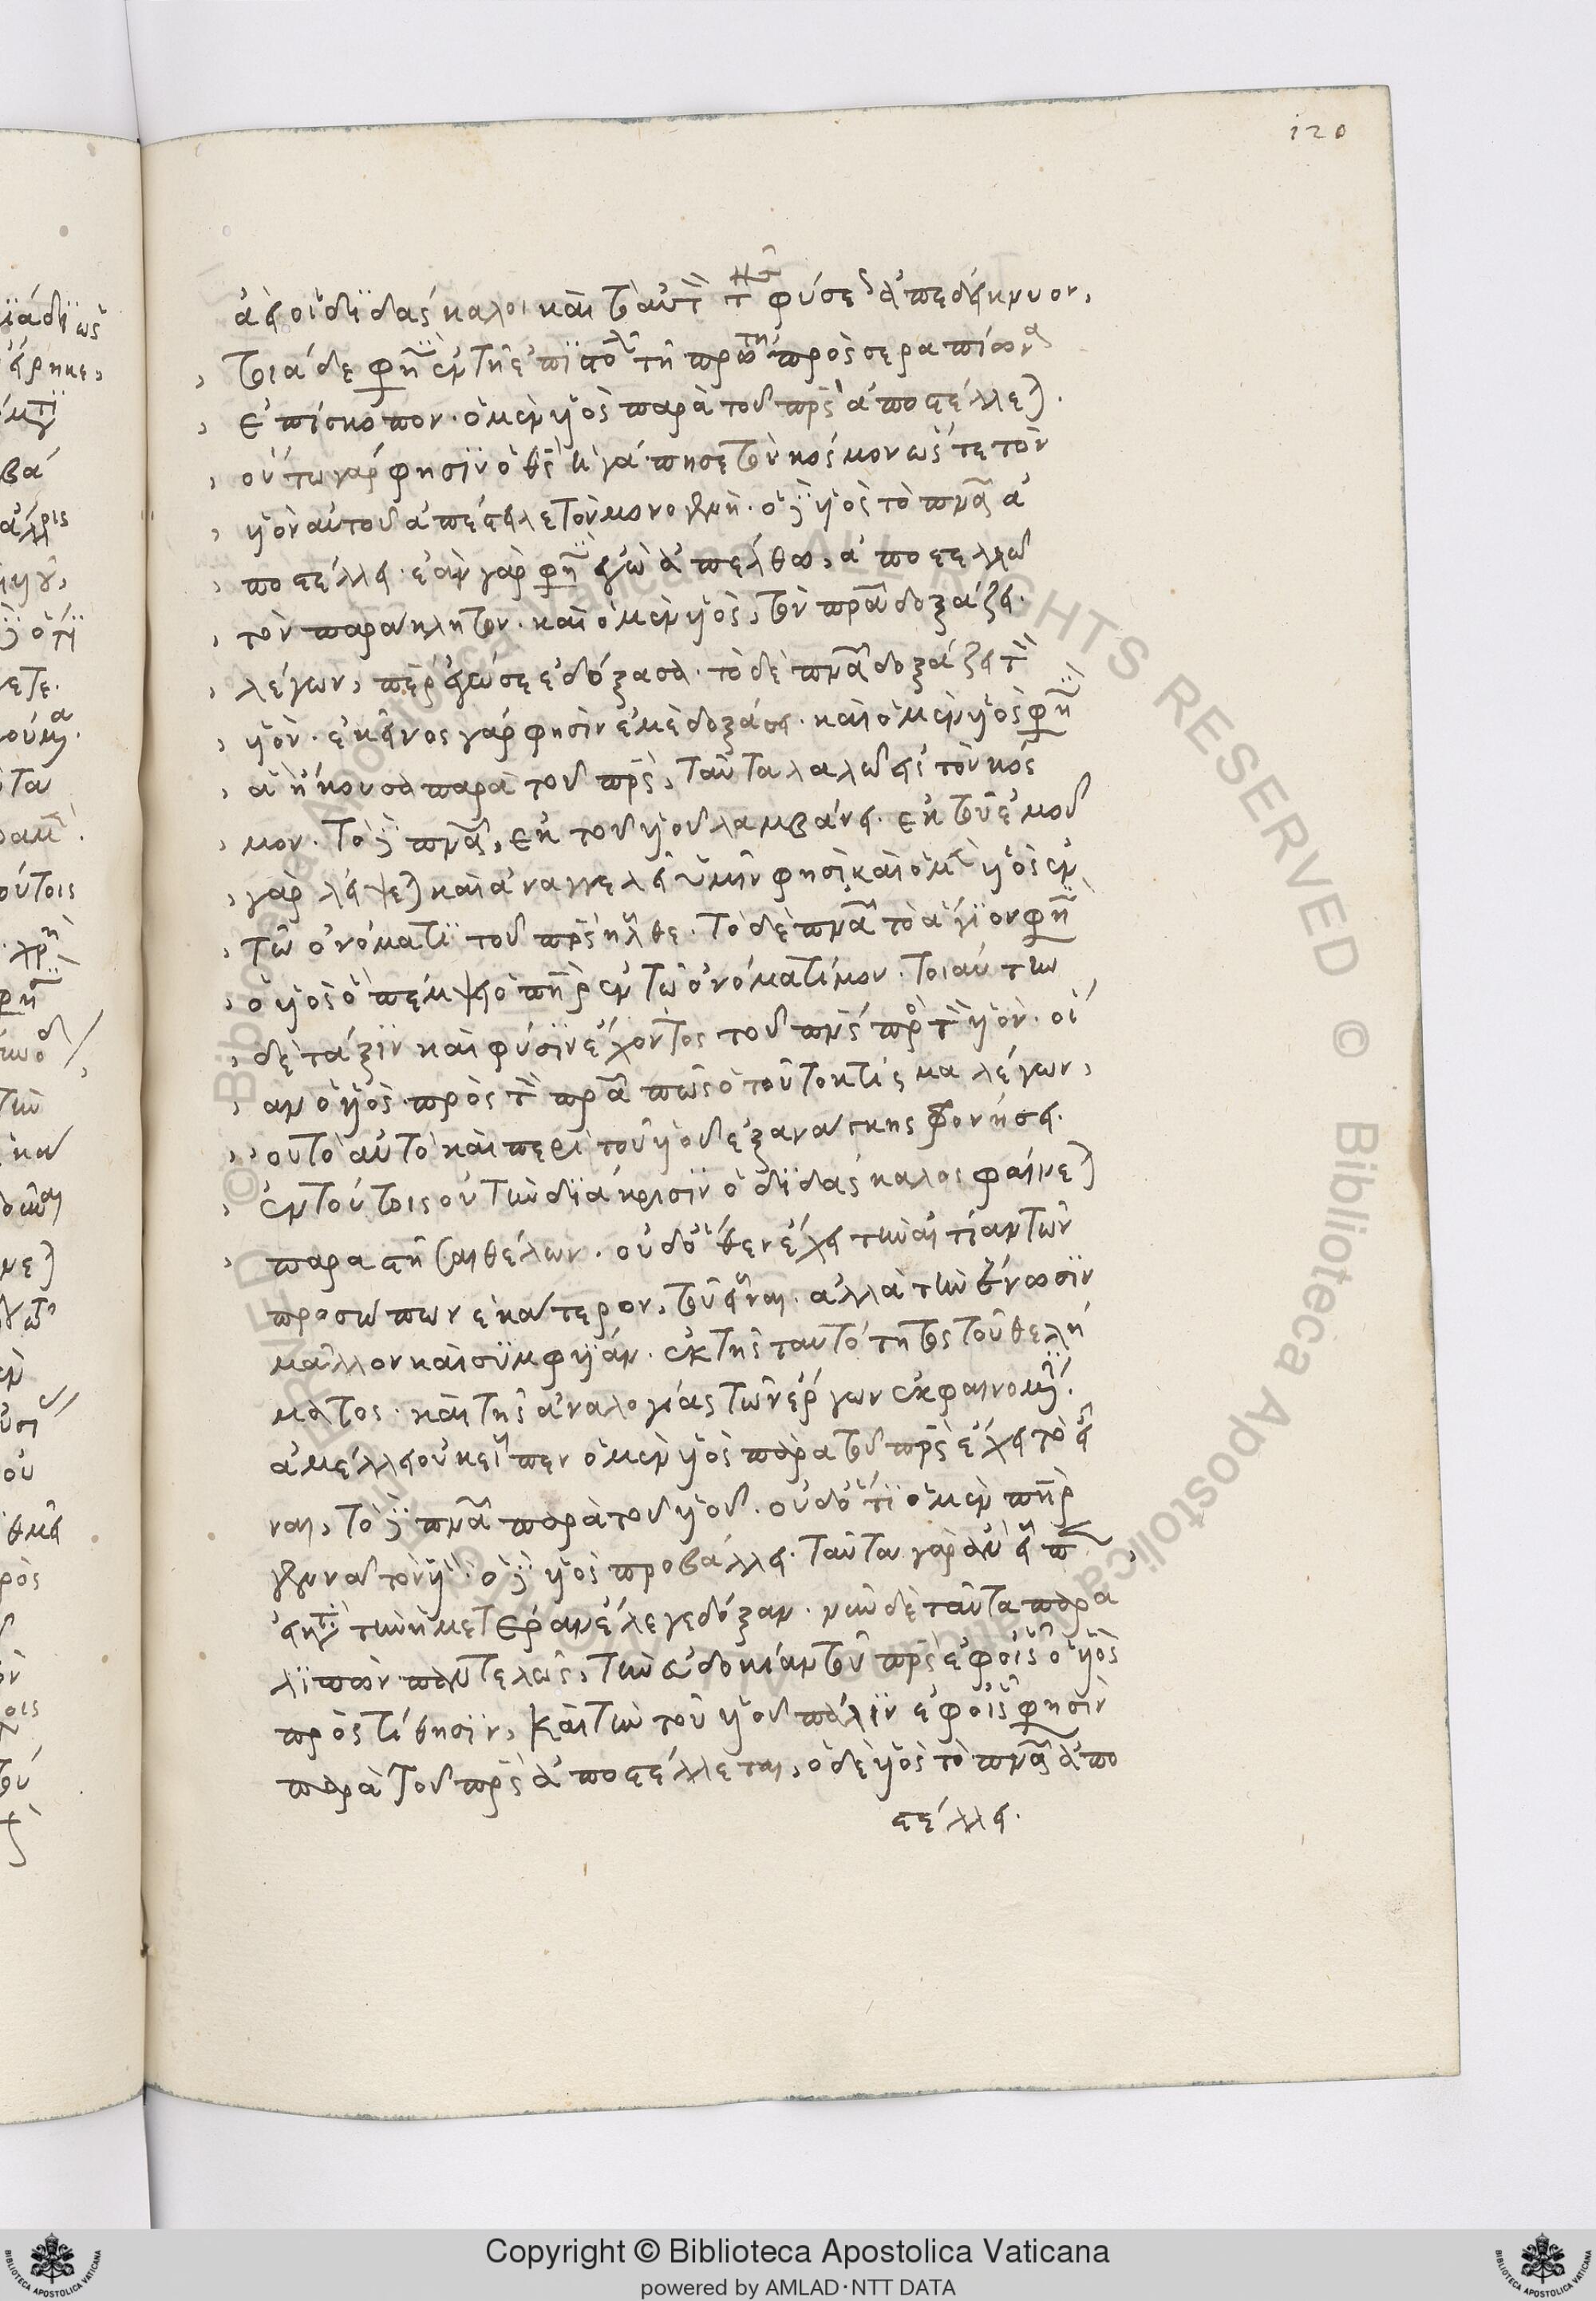 120
ἀεὶ οἱ διδάσκαλοι καὶ ταὐτὸν τῆς φύσεως ἀπεδείκνυον,
τοιάδε φησὶν ἐν τῇ ἐπιστολῇ τῇ πρώτῃ πρὸς σεραπίωνα
ἐπίσκοπον· ὁ μὲν υἱὸς παρὰ τοῦ πρς ἀποστέλλεται.
οὕτω γάρ φησιν ὁ θς ἠγάπησε τὸν κόσμον ὥστε τὸν
υἱὸν αὐτοῦ ἀπέστειλε τὸν μονογενῆ· ὁ δὲ υἱὸς τὸ πνα ἀ
ποστέλλει· ἐὰν γάρ φησιν ἐγὼ ἀπέλθω, ἀποστελλῶ
τὸν παράκλητον· καὶ ὁ μὲν υἱὸς, τὸν πρα δοξάζει·
λέγων, περ ἐγώ σε ἐδόξασα· τὸ δὲ πνα δοξάζει τὸν
υἱόν· ἐκεῖνος γάρ φησὶν ἐμὲ δοξάσει· καὶ ὁ μὲν υἱὸς φησὶν
ἃ ἤκουσα παρὰ τοῦ πρς, ταῦτα λαλῶ εἰς τὸν κόσ
μον· τὸ δὲ πνα, ἐκ τοῦ υἱοῦ λαμβάνει· ἐκ τοῦ ἐμοῦ
γὰρ λήψεται καὶ ἀναγγελεῖ ὑμῖν φησί· καὶ ὁ μὲν υἱὸς ἐν
τῶ ὀνόματι τοῦ πρς ἦλθε· τὸ δὲ πνα τὸ ἅγιον φησὶν
ὁ υἱὸς ὃ πέμψει ὁ πηρ ἐν τῶ ὀνόματί μου· τοιαύτην
δὲ τάξιν καὶ φύσιν ἔχοντος τοῦ πνς πρὸς τὸν υἱὸν· οἵ
αν ὁ υἱὸς πρὸς τὸν πρα πῶς ὁ τοῦτο κτίσμα λέγων,
οὐ τὸ αὐτὸ καὶ περὶ τοῦ υἱοῦ ἐξ ἀνάγκης φρονήσει·
ἐν τούτοις οὐ τὴν διάκρισιν ὁ διδάσκαλος φαίνεται
παραστῆσαι θέλων· οὐδ' ὅθεν ἔχει τὴν αἰτίαν τῶν
προσώπων ἑκάτερον, τοῦ εἶναι· ἀλλὰ τὴν ἕνωσιν
μᾶλλον καὶ συμφυΐαν· ἐκ τῆς ταυτότητος τοῦ θελή
ματος· καὶ τῆς ἀναλογίας τῶν ἔργων ἐκφαινομένην·
ἀμέλλει οὐκ εἶπεν ὁ μὲν υἱὸς παρὰ τοῦ πρς ἔχει τὸ εἶ
ναι, τὸ δὲ πνα παρὰ τοῦ υἱοῦ· οὐδ' ὅτι ὁ μὲν πηρ
γεννᾶ τὸν υἱόν· ὁ δὲ υἱὸς προβάλλει· ταῦτα γὰρ ἂν εἶπεν
εἴπερ τὴν ἡμετέραν ἔλεγε δόξαν· νῦν δὲ ταῦτα παρα
λιπὼν παντελῶς, τὴν εὐδοκίαν τοῦ πρς ἐφ οἷς ὁ υἱὸς
προστίθησιν, καὶ τὴν τοῦ υἱοῦ πάλιν ἐφ οἷς φησὶν
παρὰ τοῦ πρς ἀποστέλλεται, ὁ δὲ υἱὸς τὸ πνα ἀπο
στέλλει.
Copyright © Biblioteca Apostolica Vaticana
powered by AMLAD·NTT DATA